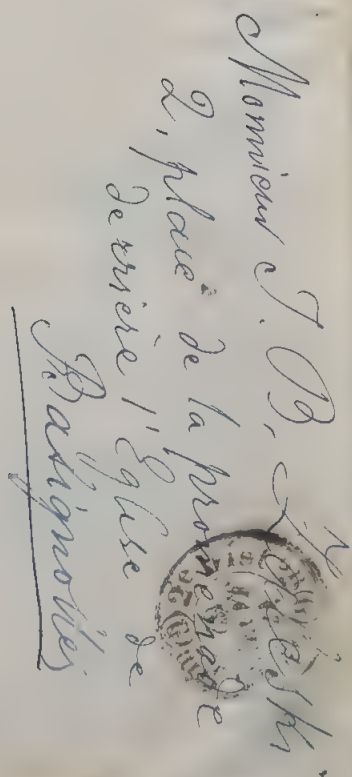 Monsieur J. B.
2, place de la promenade
derrière l'Eglise de
Batignolles